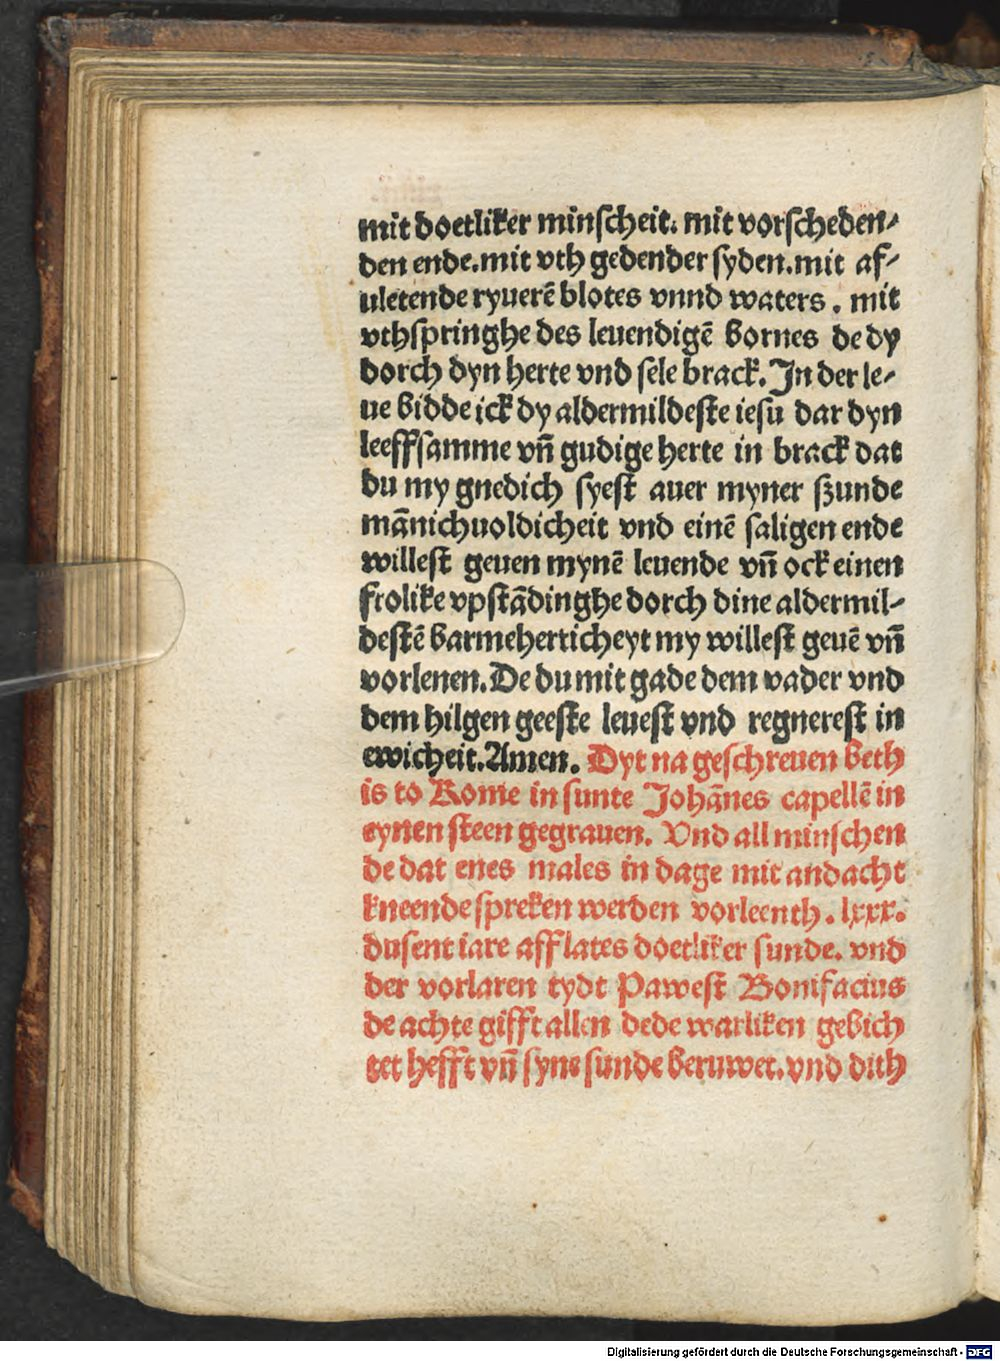 mit doetliker minscheit. mit vorscheden⸗
den ende. mit vth gedender syden. mit af⸗
uletende ryuerē blotes vnnd waters. mit
vthspringhe des leuendigē bornes de dy
dorch dyn herte vnd sele brack. In der le⸗
ue bidde ick dy aldermildeste iesu dar dyn
leeffsamme vn̄ gudige herte in brack dat
du my gnedich syest auer myner szunde
mānichuoldicheit vnd einē saligen ende
willest geuen mynē leuende vn̄ ock einen
frolike vpstādinghe dorch dine aldermil⸗
destē barmeherticheyt my willest geuē vn̄
vorlenen. De du mit gade dem vader vnd
dem hilgen geeste leuest vnd regnerest in
ewicheit. Amen. Dyt na geschreuen beth
is to Rome in sunte Johānes capellē in
eynen steen gegrauen. Vnd all minschen
de dat enes males in dage mit andacht
kneende spreken werden vorleenth. lxxx.
dusent iare afflates doetliker sunde. vnd
der vorlaren tydt Pawest Bonifacius
de achte gifft allen dede warliken gebich
tet hefft vn̄ syne sunde beruwet. vnd dith
Digitalisierung gefördert durch die Deutsche Forschungsgemeinschaft - DFG